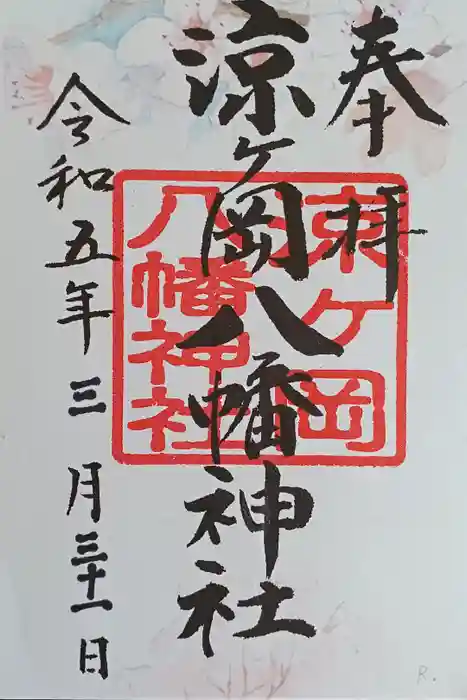 奉拝
涼ヶ岡八幡神社
涼ケ岡
八幡神社
令和五年三月三十一日
R.